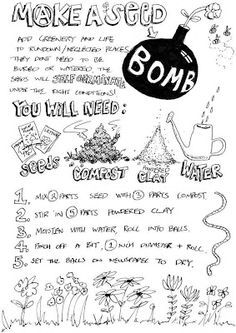 MAKE A SEED
BOMB
ADD GREENERY AND LIFE
TO RUNDOWN/NEGLECTED PLACES
THEY DONT NEED TO BE
BURIED OR WATERED THE
SEEDS WILL SELF GERMINATE
UNDER THE RIGHT CONDITIONS!
YOU WILL NEED:
SEEDS
COMPOST
CLAY
WATER
1. MIX 2 PARTS SEED WITH 3 PARTS COMPOST
2. STIR IN 5 PARTS POWDERED CLAY
3. MOISTEN WITH WATER, ROLL INTO BALLS.
4. PINCH OFF A BIT, 1 INCH DIAMETER + ROLL.
5. SET THE BALLS ON NEWSPAPER TO DRY.